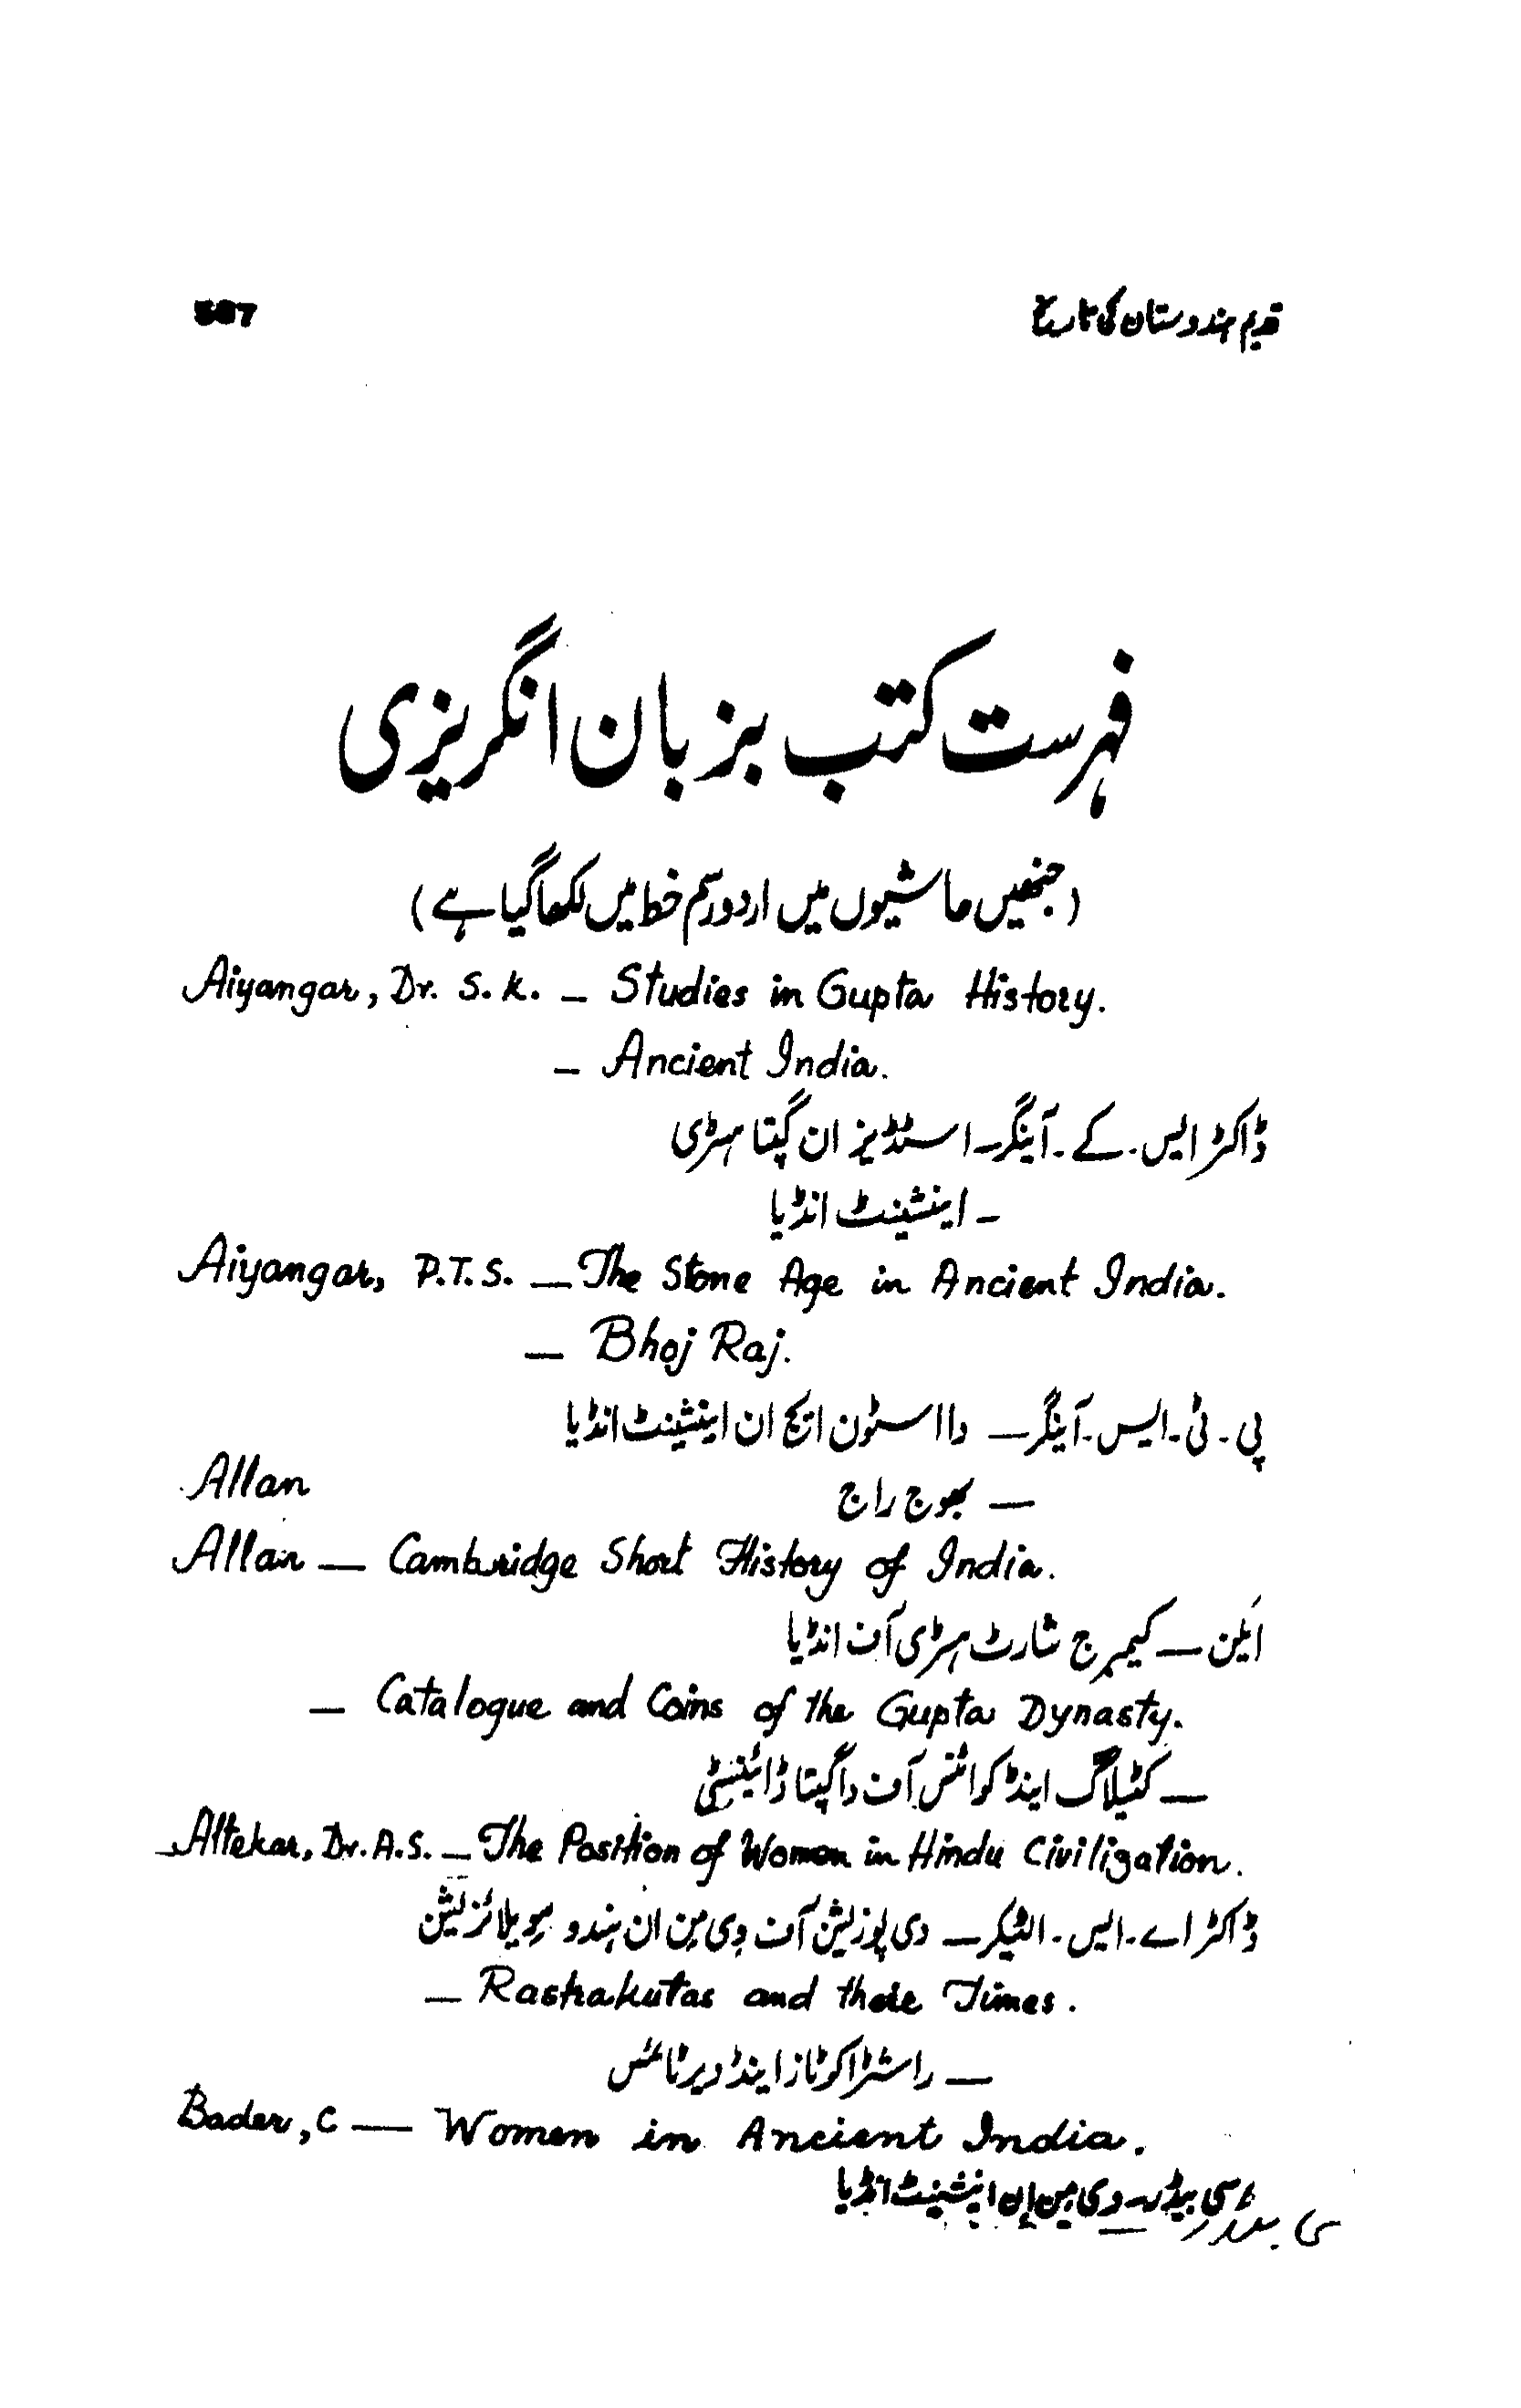 قدیم ہندوستان کی تاریخ 587
فہرست کتب بزبان انگریزی
(جنھیں حاشیوں میں اردو رسم خط میں لکھا گیا ہے)
Aiyangar, Dr. S. K. – Studies in Gupta History.
– Ancient India.
ڈاکٹر ایس. کے۔ آینگر۔ اسٹڈیز ان گپتا ہسٹری
– اینشینٹ انڈیا
Aiyangar, P.T.S. — The Stone Age in Ancient India.
— Bhoj Raj.
پی۔ ٹی۔ ایس۔ آینگر— دا اسٹون ایج ان اینشینٹ انڈیا
Allan
— بھوج راج
Allan — Cambridge Short History of India.
ایلن — کیمبرج شارٹ ہسٹری آف انڈیا
— Catalogue and Coins of the Gupta Dynasty.
— کٹیلاگ اینڈ کوائنس آف دا گپتا ڈائینسٹی
Altekar, Dr. A.S. — The Position of Women in Hindu Civiligation.
ڈاکٹر اے۔ ایس۔ الٹیکر — دی پوزیشن آف وی مِن اِن ہندو سِویلائزیشن
— Rashakutas and their Times.
— راشٹراکوٹاز اینڈ دیر ٹائمس
Bader, C — Women in Ancient India.
سی بیڈر۔ وی مین اِن اینشینٹ انڈیا